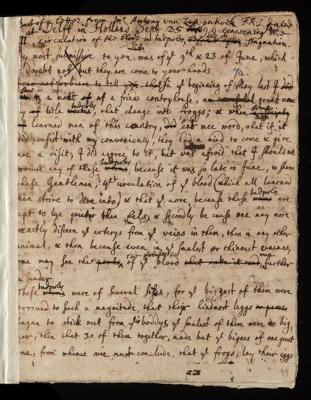 Part of a Letter from Mr Antony van Leeuwenhoek F.R.S. dated
Delft in Holland Sept 25 concerning the
circulation of the Blood in tadpoles,
my most to you was of ye 9th & 23 of June, which I
doubt not but they are come to your hands.
of ye beginning of May last I did
saw in a of a frias contryhouse, an great many
little tadpoles, that change into froggs; & when
learned men of this country, did sent mee word, that if it
did consist with my conveniency, they had a mind to come & give
mee a visit, I did agree to it, but was afraid that I should not
mount any of these tadpoles because it was so late in June, to show
these Gentlemen, ye circulation of ye blood (which all learned
men strive to dive into) & that ye more, because these tadpoles are
apt to lye quieter then fishes & secondly because one may more
exactly discern ye arterys from ye veines in them, then in any other
animal, & then because even in ye smalest or thinnest vaines,
one may see the of ye blood further
These tadpoles were of several sizes, for ye biggest of them were
arrived to such a magnitude, that their hindmost leggs
began to stick out from ye boddys, ye smalest of them were no big-
ger, then that 30 of them together, made but ye bignes of one great
one, from whence wee must conclude, that ye frogs, lay their eggs